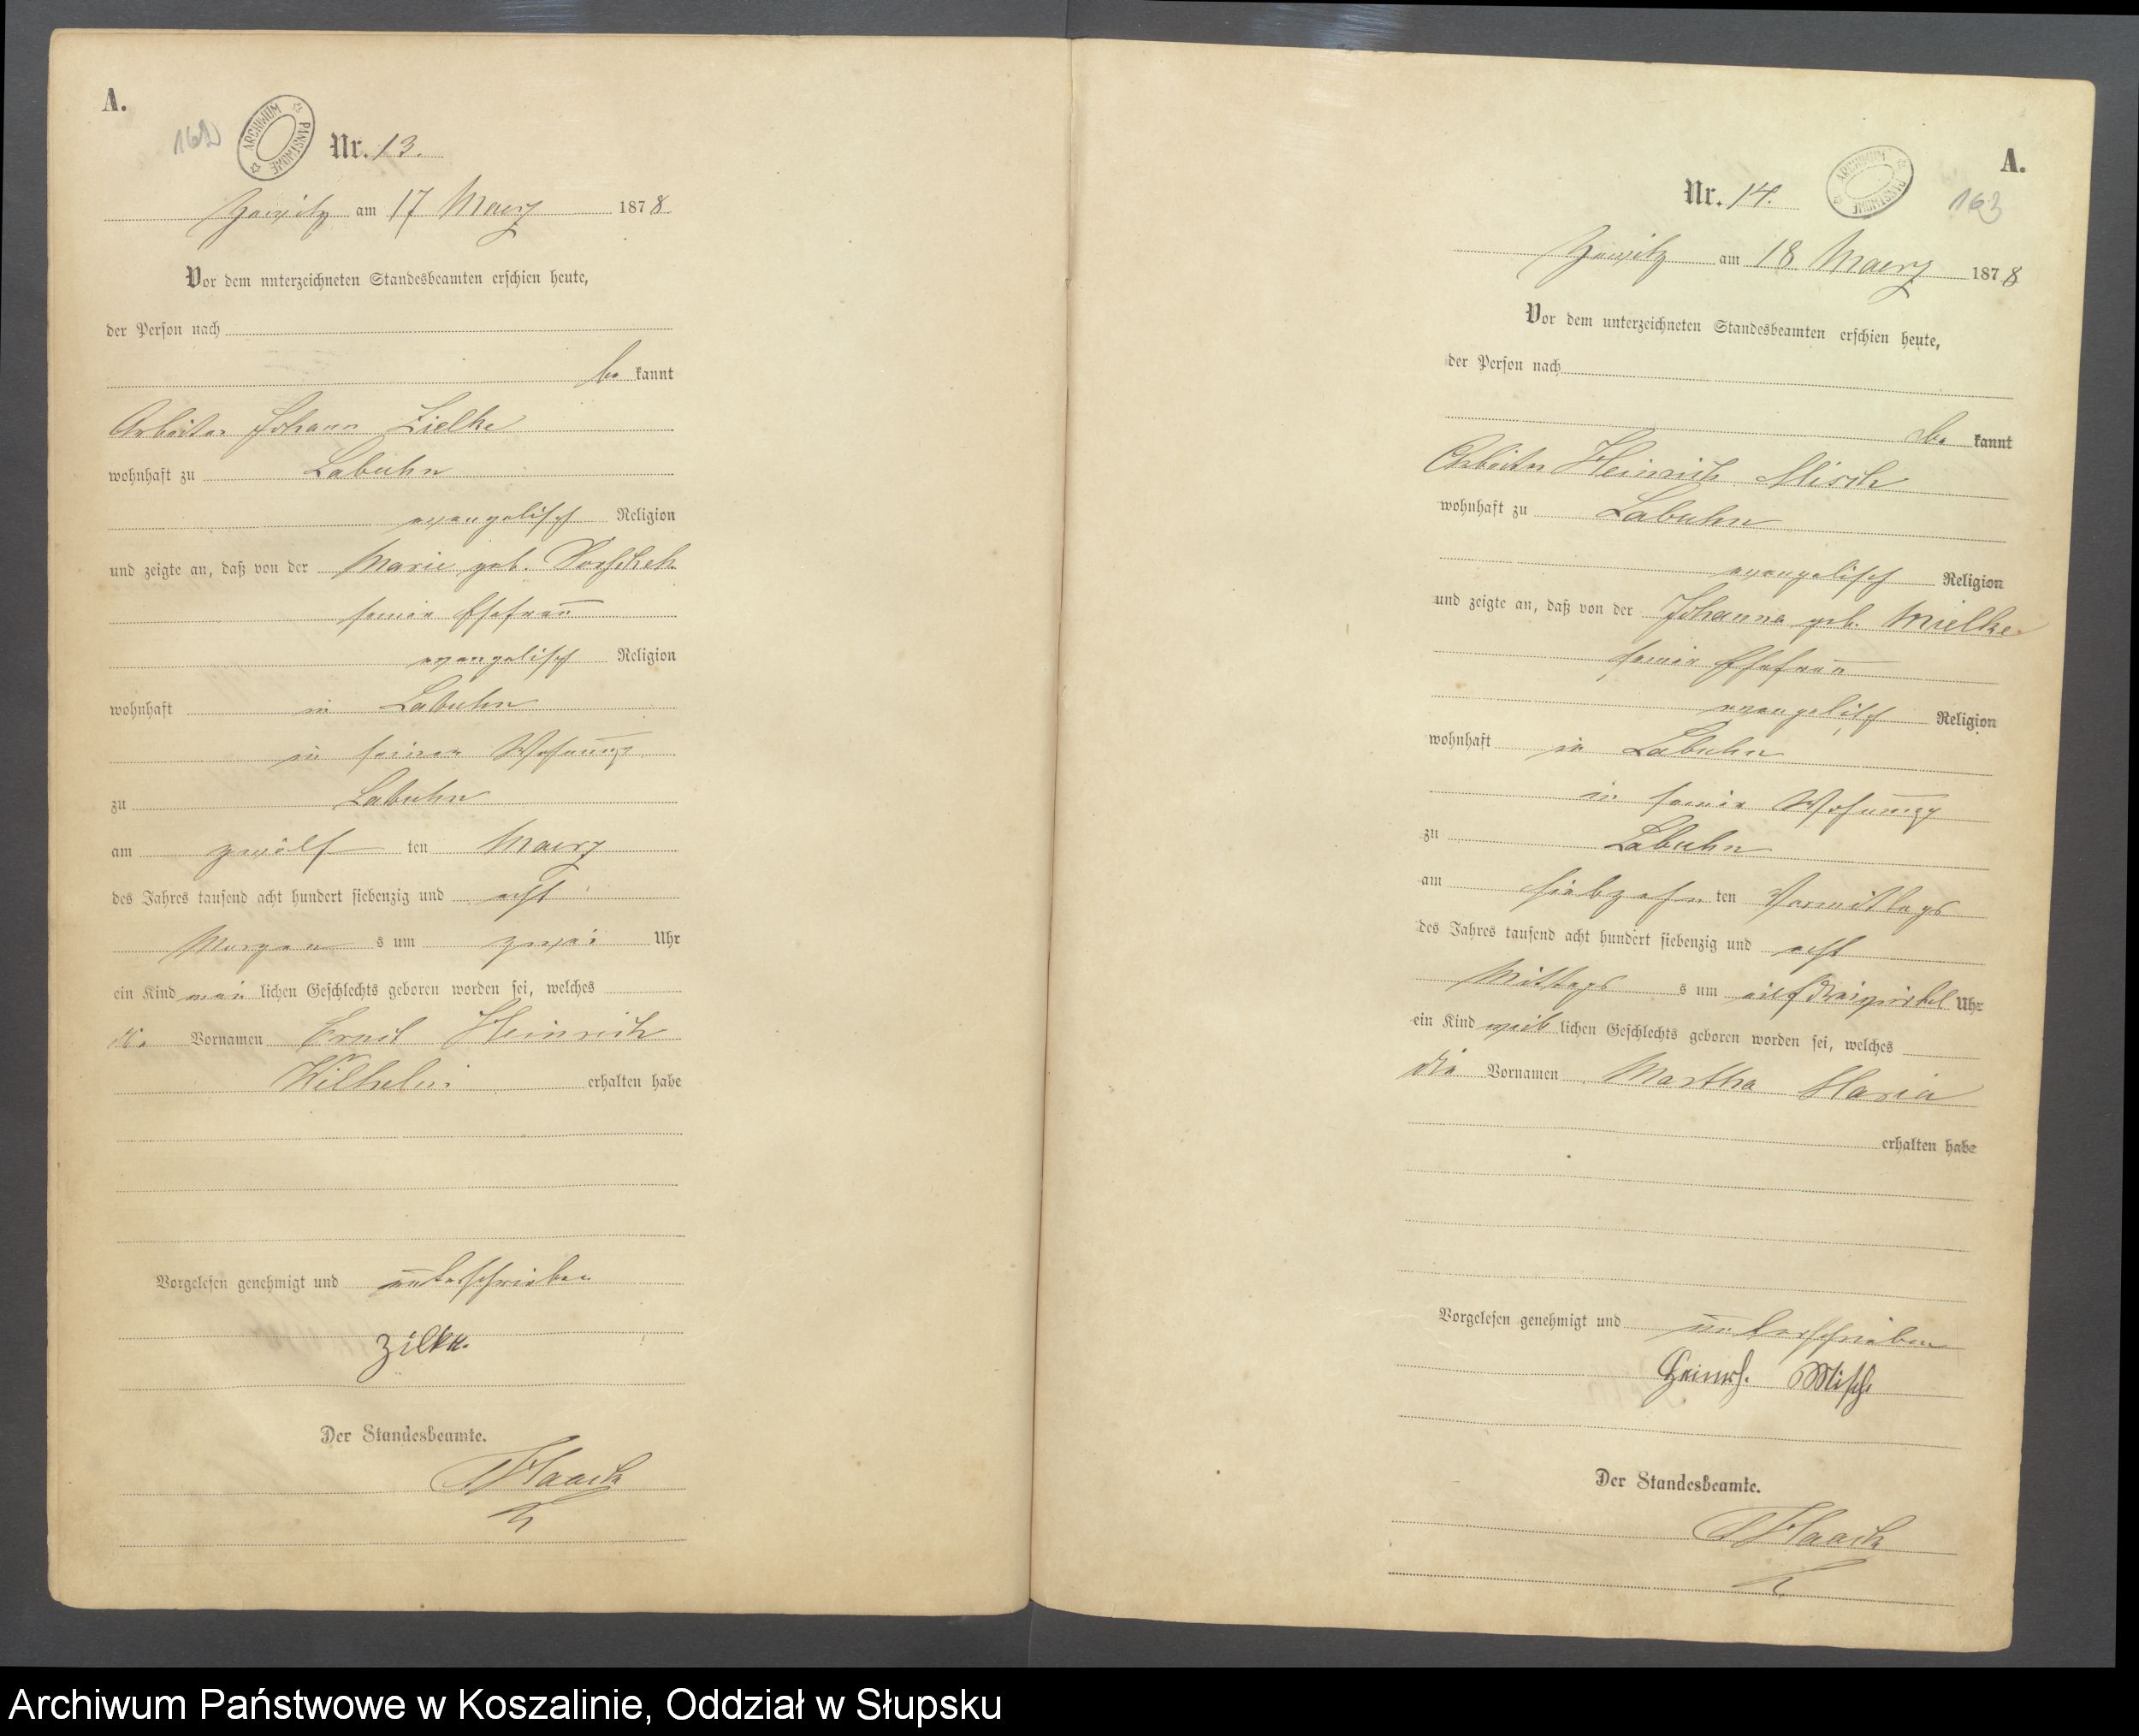 A.
162
ARCHIWUM PAŃSTWOWE
Nr. 13.
Zewitz am 17 Maerz 1878.
Vor dem unterzeichneten Standesbeamten erschien heute,
der Person nach
be kannt
Arbeiter Johann Zielke
wohnhaft zu Labuhn
evangelisch Religion
und zeigte an, daß von der Marie geb.
seiner Ehefrau
evangelisch Religion
wohnhaft in Labuhn
in seiner Wohnung
zu Labuhn
am zwölf ten Maerz
des Jahres tausend acht hundert siebenzig und acht
Morgen s um zwei Uhr
ein Kind män lichen Geschlechts geboren worden sei, welches
die Vornamen Ernst Heinrich
Wilhelm erhalten habe
Vorgelesen genehmigt und unterschrieben
Zilke.
Der Standesbeamte.
Haack
A.
163
ARCHIWUM PAŃSTWOWE
Nr. 14.
Zewitz am 18 Maerz 1878
Vor dem unterzeichneten Standesbeamten erschien heute,
der Person nach
be kannt
Arbeiter Heinrich Misch
wohnhaft zu Labuhn
evangelisch Religion
und zeigte an, daß von der Johanne geb. Mielke
seiner Ehefrau
evangelisch Religion
wohnhaft in Labuhn
in seiner Wohnung
zu Labuhn
am siebzehn ten Vormittags
des Jahres tausend acht hundert siebenzig und acht
Mittags s um elf dreiviertel Uhr
ein Kind weib lichen Geschlechts geboren worden sei, welches
die Vornamen Martha Maria
erhalten habe
Vorgelesen genehmigt und unterschrieben
Heinrh. Misch
Der Standesbeamte.
Haack
Archiwum Państwowe w Koszalinie, Oddział w Słupsku